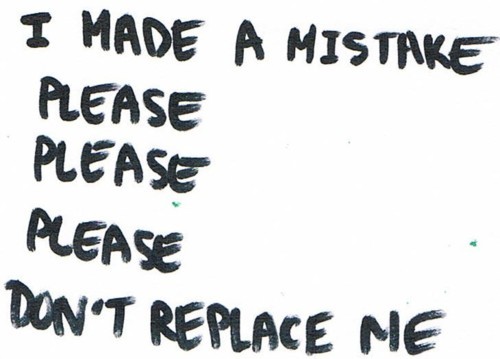 I MADE A MISTAKE
PLEASE
PLEASE
PLEASE
DON'T REPLACE ME